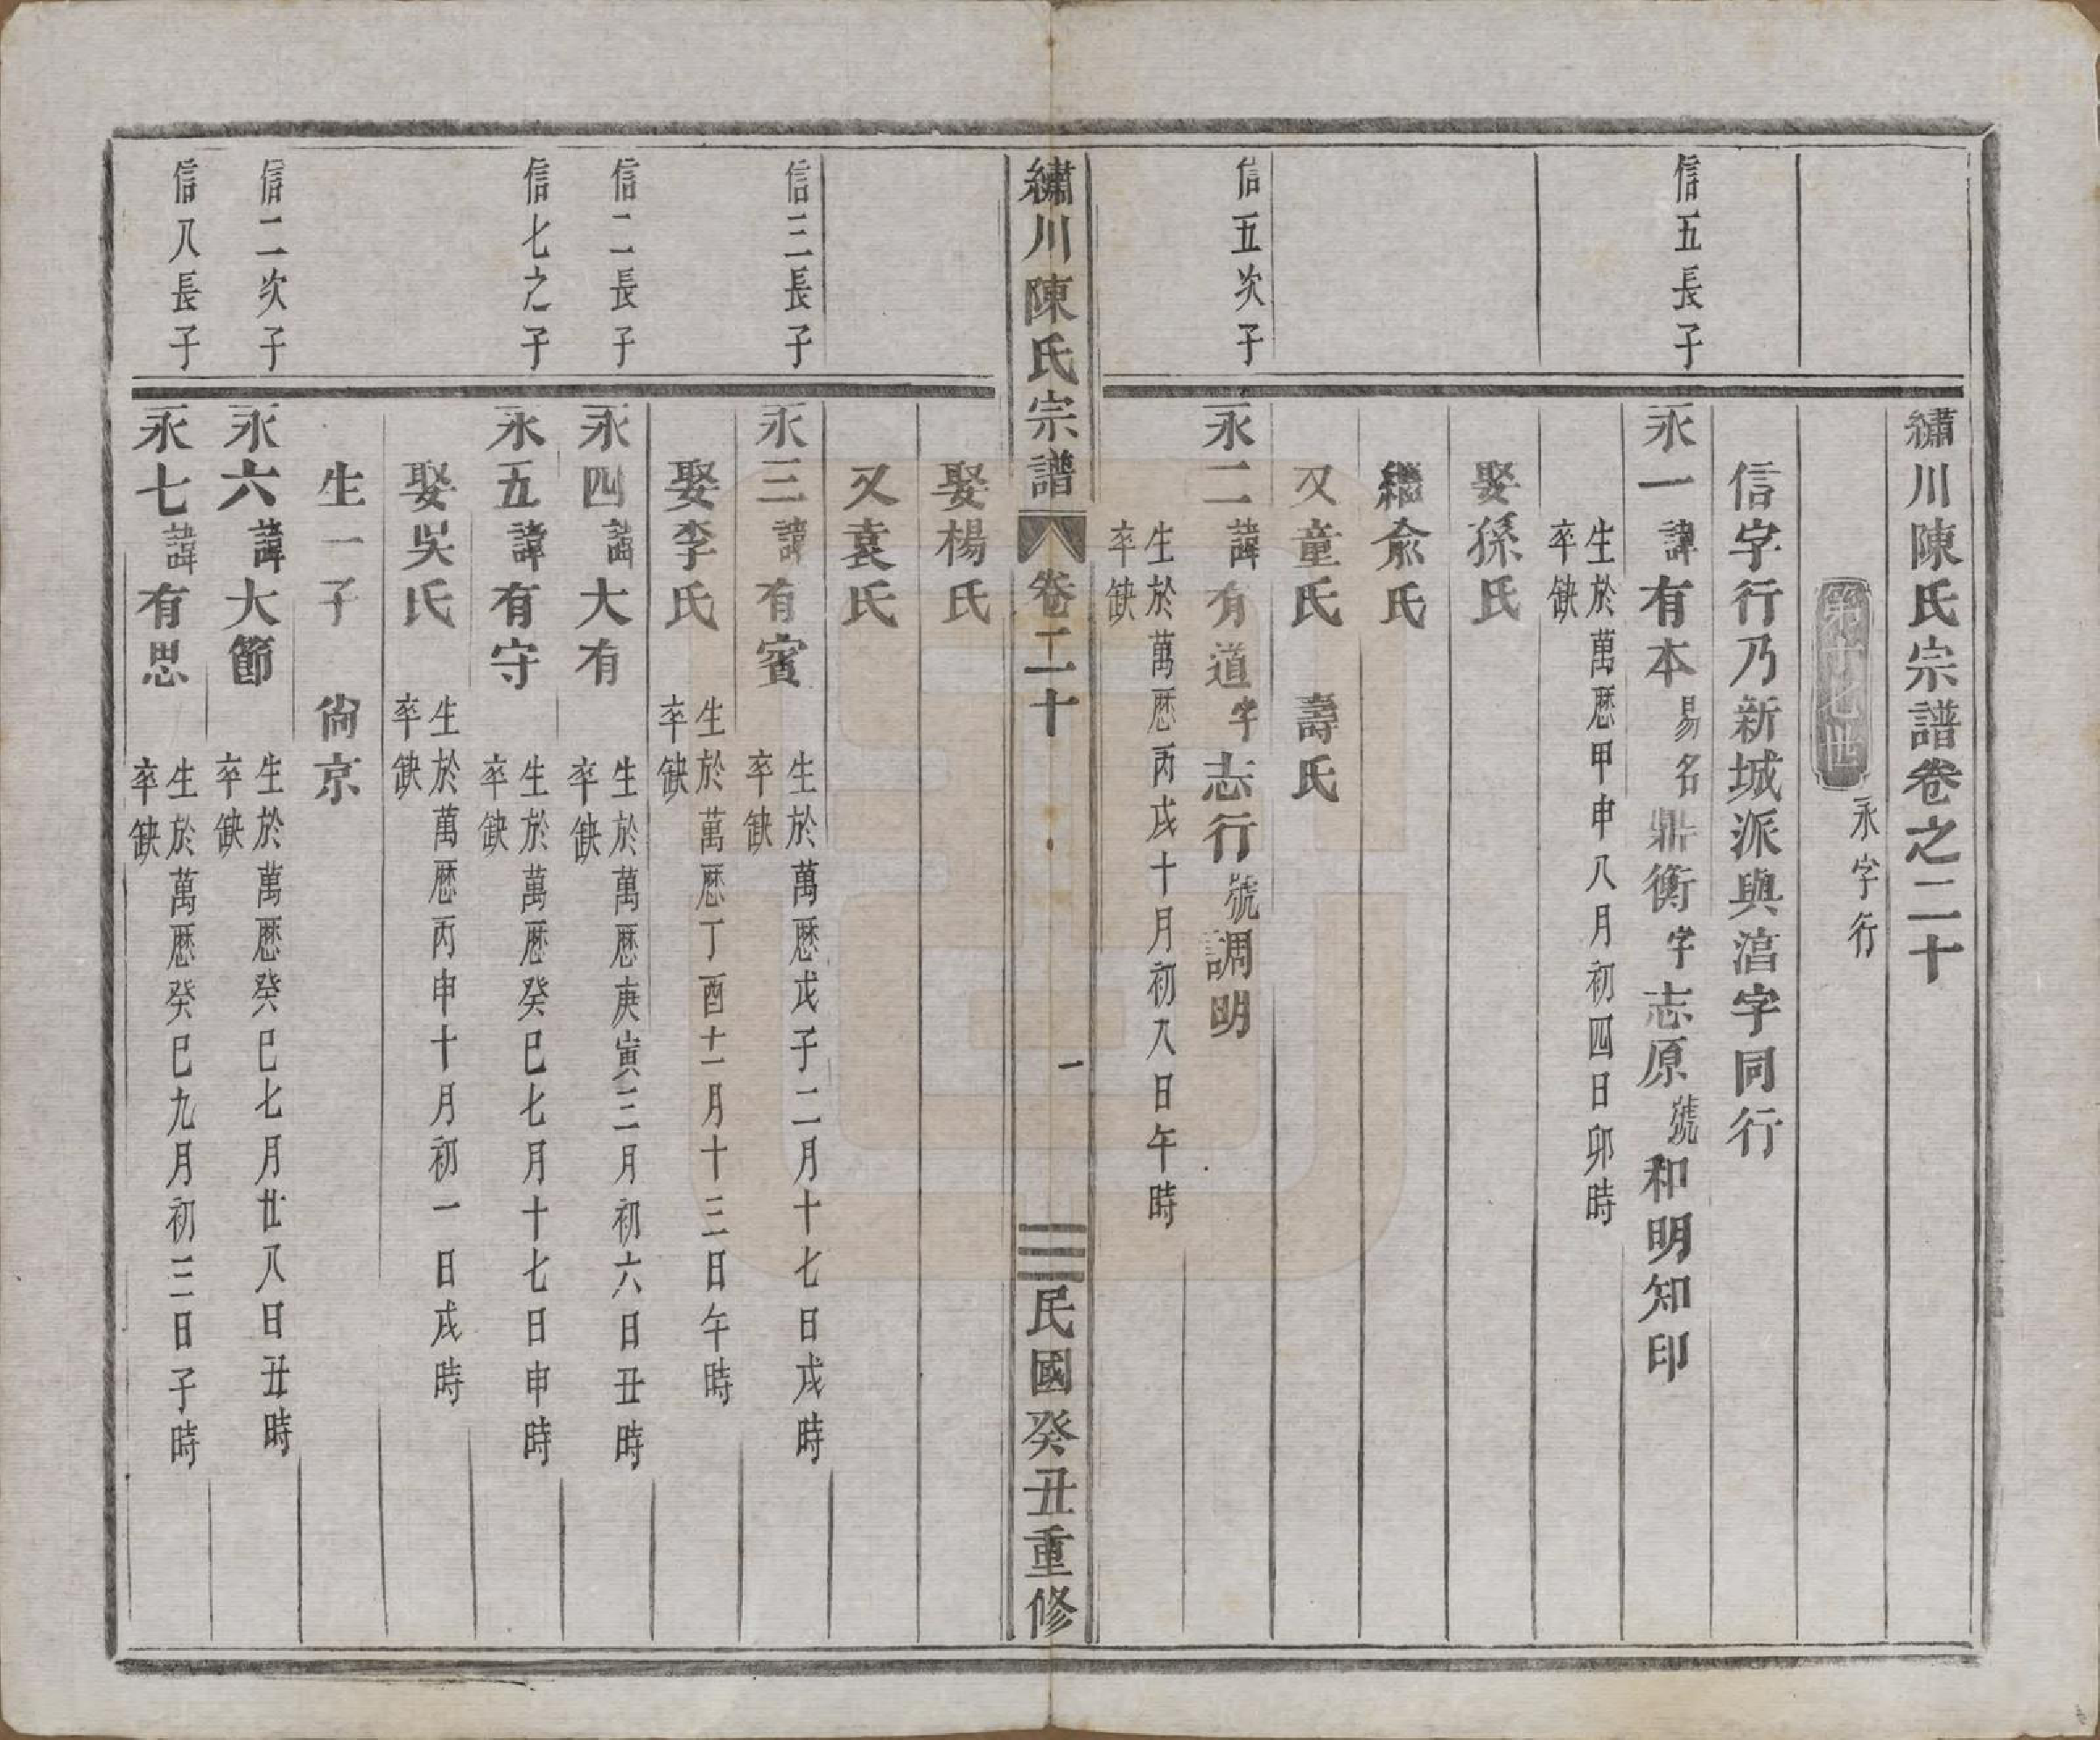 繡川陳氏宗譜卷之二十
第十七世
永字行
信字行乃新城派與湻字同行
信五長子
永一諱有本易名鼎衡字志原號和明知印
生於萬厯甲申八月初四日卯時
卒缺
娶孫氏
繼俞氏
又童氏 壽氏
信五次子
永二諱有道字志行號調明
生於萬厯丙戌十月初八日午時
卒缺
繡川陳氏宗譜
卷二十
一
民國癸丑重修
娶楊氏
又袁氏
信三長子
永三諱有賓
生於萬厯戊子二月十七日戌時
卒缺
娶李氏
生於萬厯丁酉十一月十三日午時
卒缺
信二長子
永四諱大有
生於萬厯庚寅三月初六日丑時
卒缺
信七之子
永五諱有守
生於萬厯癸巳七月十七日申時
卒缺
娶吳氏
生於萬厯丙申十月初一日戌時
卒缺
生一子 尙京
信二次子
永六諱大節
生於萬厯癸巳七月廿八日丑時
卒缺
信八長子
永七諱有思
生於萬厯癸巳九月初三日子時
卒缺